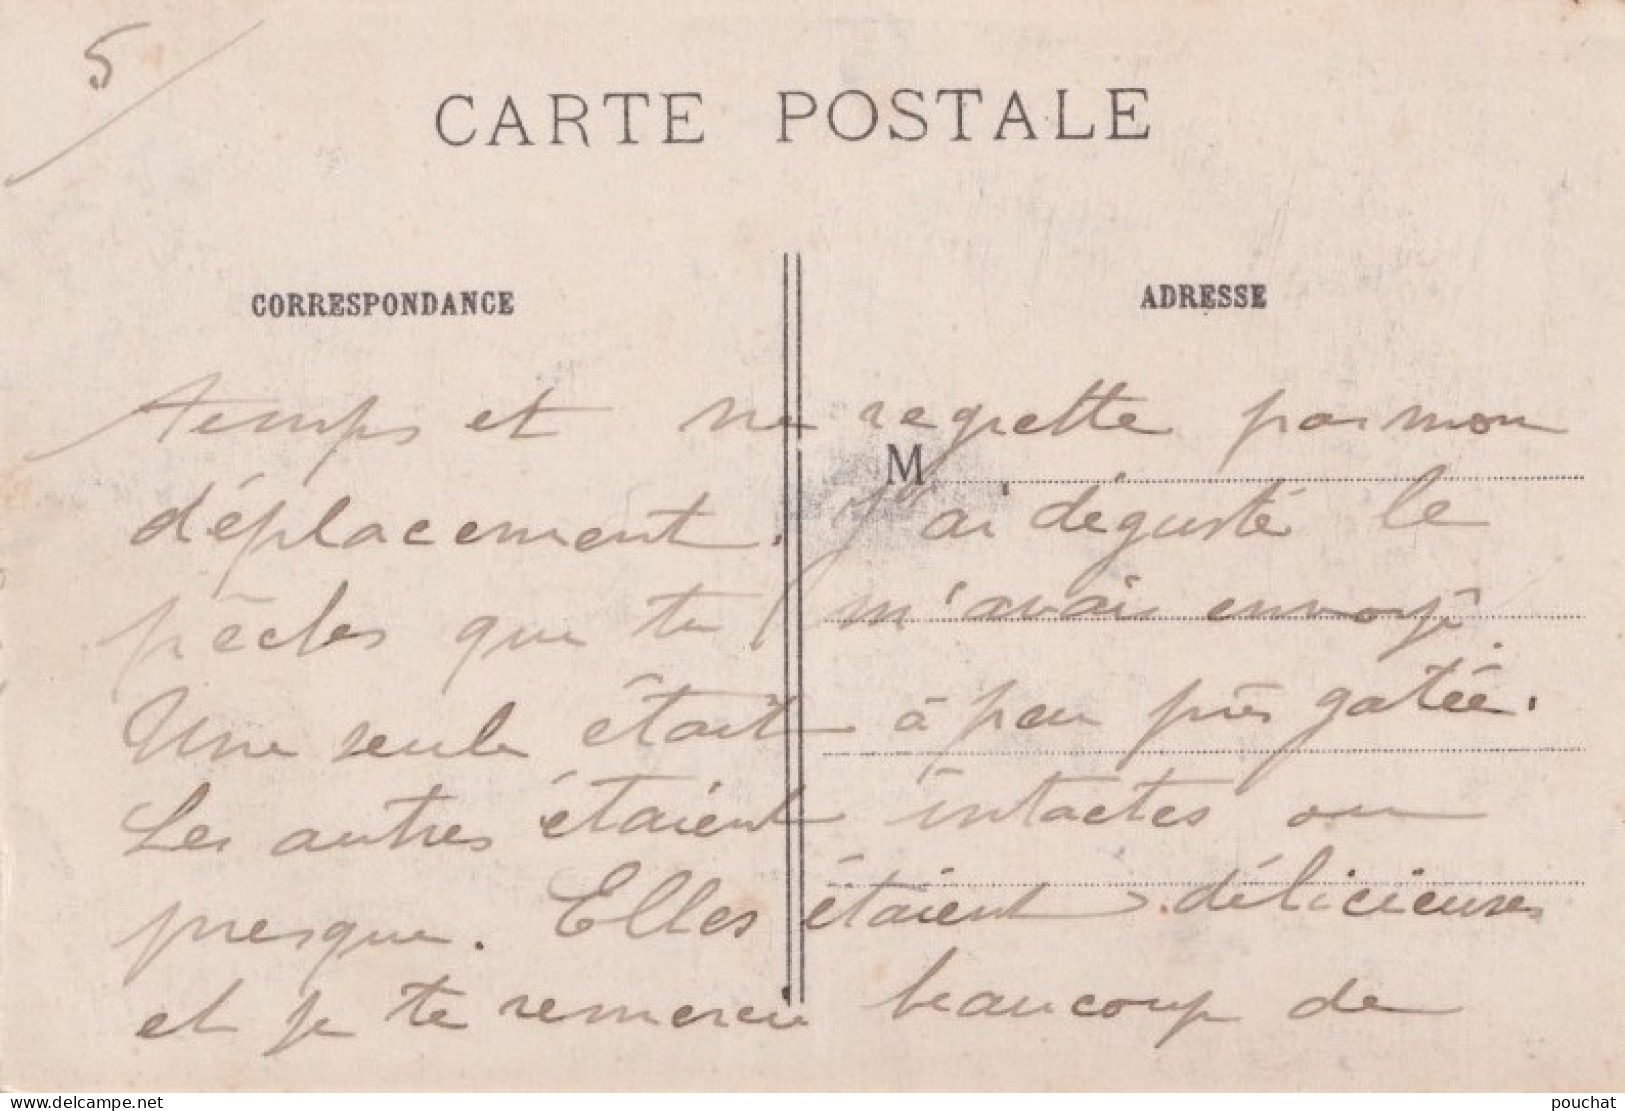 5
CARTE POSTALE
CORRESPONDANCE
ADRESSE
temps et ne regrette pas mon
M
déplacement. J'ai dégusté le
pêches que tu m'avais envoyé.
Une seule était à peu près gatée.
Les autres étaient intactes ou
presque. Elles étaient délicieuses
et je te remercie beaucoup de
www.delcampe.net
pouchat